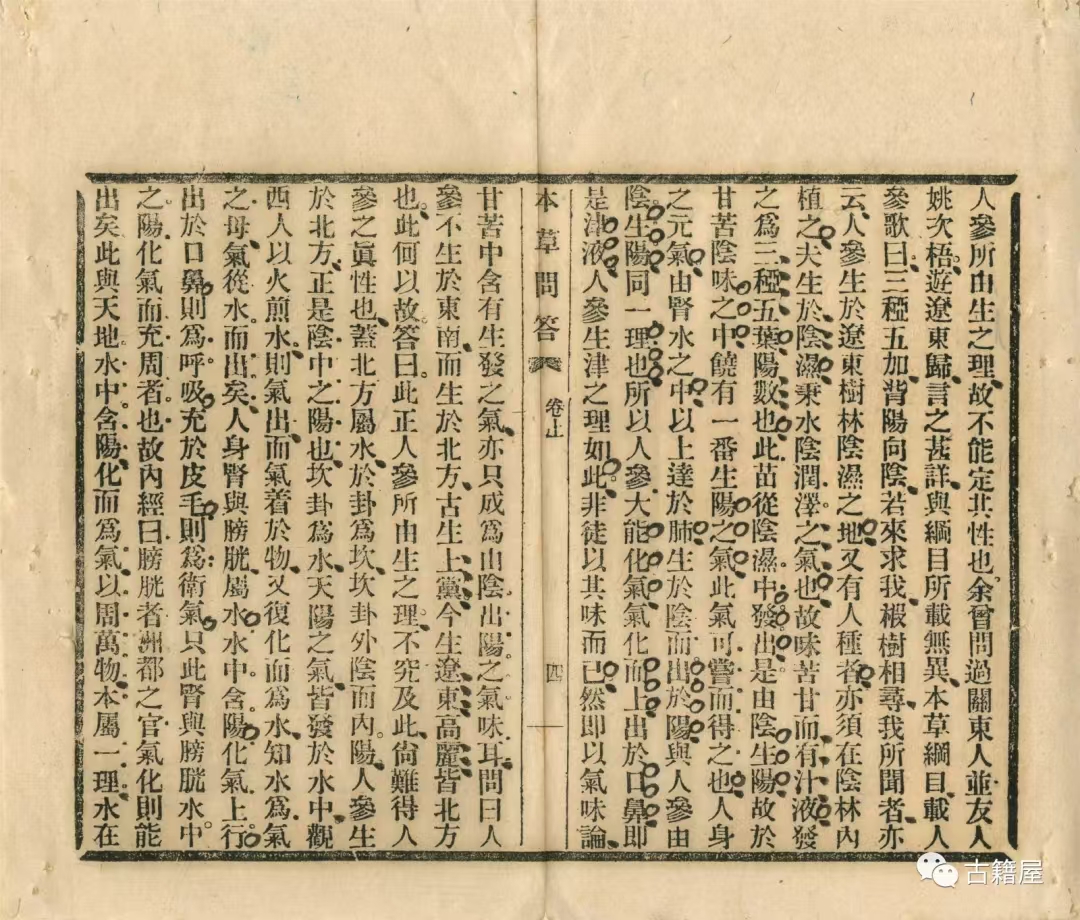 人參所由生之理故不能定其性也余曾問過關東人並友人
姚次梧遊遼東歸言之甚詳與綱目所載無異本草綱目載人
參歌曰三椏五加背陽向陰若來求我椴樹相尋我所聞者亦
云人參生於遼東樹林陰濕之地又有人種者亦須在陰林內
植之夫生於陰濕秉水陰潤澤之氣也故味苦甘而有汁液發
之爲三椏五葉陽數也此苗從陰濕中發出是由陰生陽故於
甘苦陰味之中饒有一番生陽之氣此氣可嘗而得之也人身
之元氣由腎水之中以上達於肺生於陰而出於陽與人參由
陰生陽同一理也所以人參大能化氣氣化而上出於口鼻即
是津液人參生津之理如此非徒以其味而已然即以氣味論
本草問答 卷上 四
甘苦中含有生發之氣亦只成爲由陰出陽之氣味耳問曰人
參不生於東南而生於北方古生上黨今生遼東高麗皆北方
也此何以故答曰此正人參所由生之理不究及此尙難得人
參之眞性也蓋北方屬水於卦爲坎坎卦外陰而內陽人參生
於北方正是陰中之陽也坎卦爲水天陽之氣皆發於水中觀
西人以火煎水則氣出而氣着於物又復化而爲水知水爲氣
之母氣從水而出矣人身腎與膀胱屬水水中含陽化氣上行
出於口鼻則爲呼吸充於皮毛則爲衛氣只此腎與膀胱水中
之陽化氣而充周者也故內經曰膀胱者州都之官氣化則能
出矣此與天地水中含陽化而爲氣以周萬物本屬一理水在
古籍屋